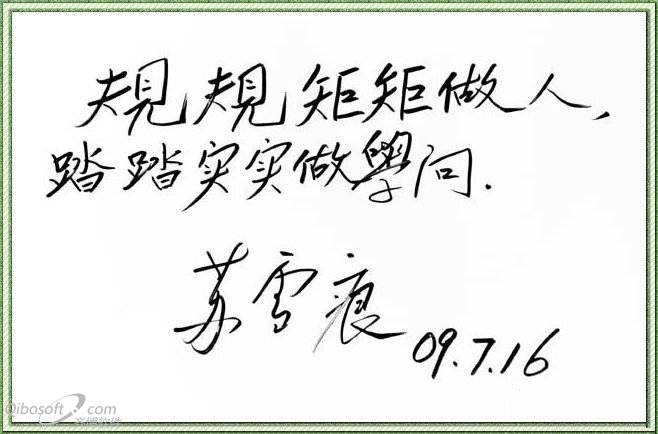 規規矩矩做人，
踏踏实实做學问.
苏雪痕
09.7.16
Qibosoft.com